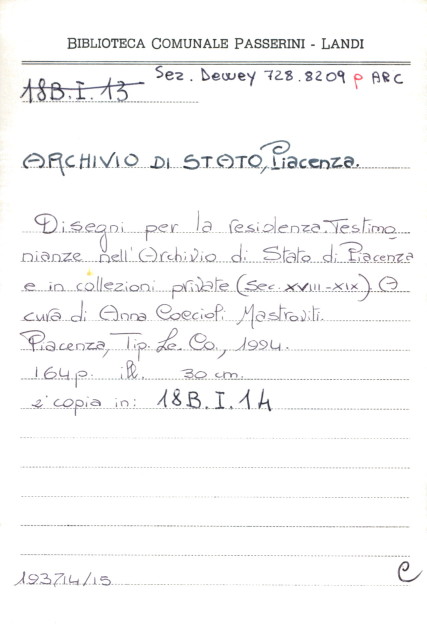 BIBLIOTECA COMUNALE PASSERINI - LANDI
Sez. Dewey 728.8209 p ARC
18B.I.13
ARCHIVIO DI STATO, Piacenza.
Disegni per la residenza. Testimo
nianze nell'Archivio di Stato di Piacenza
e in collezioni private (sec. XVIII-XIX) A
cura di Anna Coccioli Mastroviti.
Piacenza, Tip. Le. Co., 1994.
164 p. ill. 30 cm.
e' copia in: 18B.I.14
193714/15
C